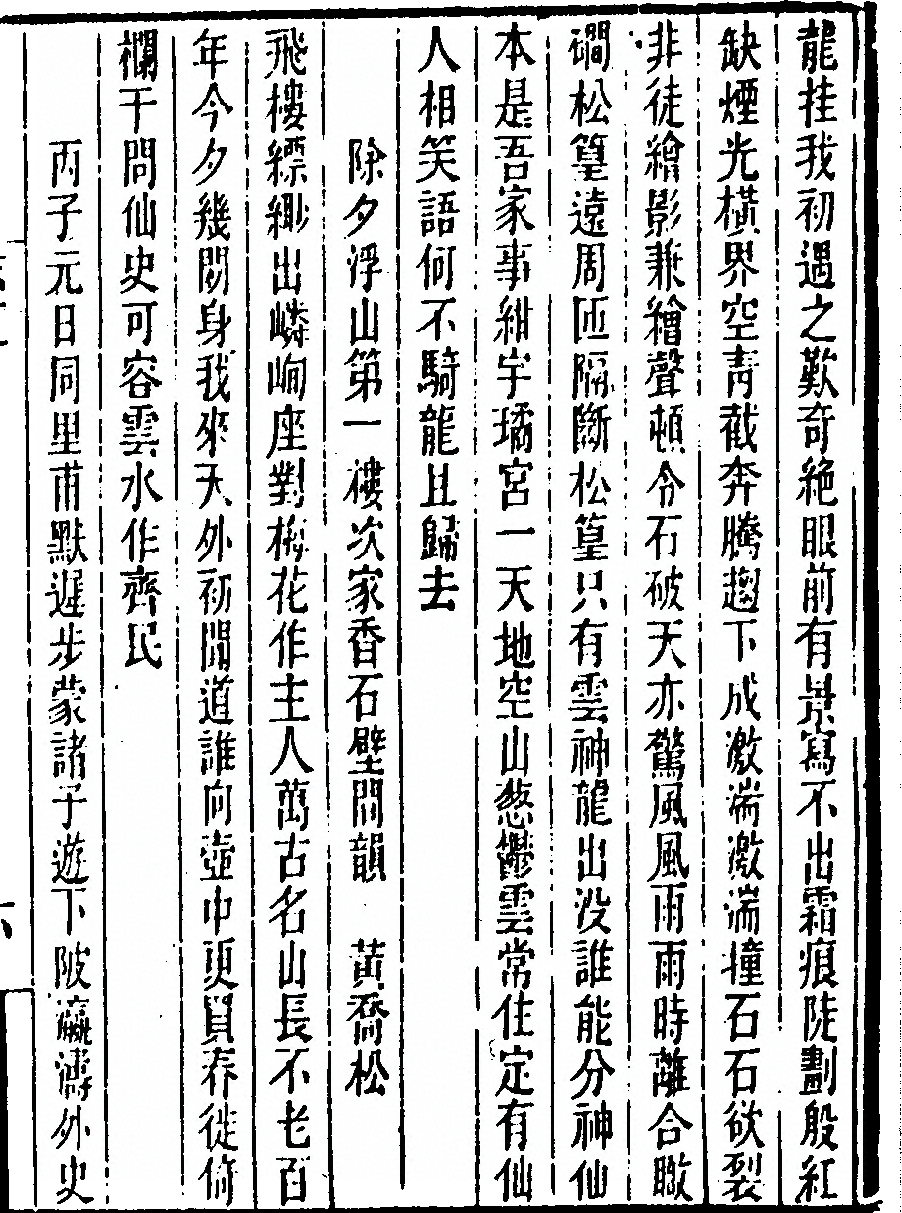 龍挂我初遇之歎奇絶眼前有景寫不出霜痕陡劃殷紅
缺煙光橫界空青截奔騰趨下成激湍激湍撞石石欲裂
非徒繪影兼繪聲頓令石破天亦驚風風雨雨時離合瞰
磵松篁遠周匝隔斷松篁只有雲神龍出没誰能分神仙
本是吾家事紺宇璚宮一天地空山葱鬱雲常住定有仙
人相笑語何不騎龍且歸去
除夕浮山第一樓次家香石壁間韻　黃喬松
飛樓縹緲出嶙峋座對梅花作主人萬古名山長不老百
年今夕幾閒身我來天外初聞道誰向壺中更買春徙倚
欄干問仙史可容雲水作齊民
丙子元日同里甫默遲步蒙諸子遊下陂瀛濤外史